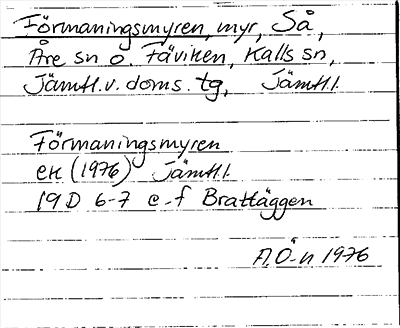 Förmaningsmyren, myr, Så,
Åre sn o. Fäviken, Kalls sn,
Jämtl. v. doms. tg, Jämtl. l.
Förmaningsmyren
ek (1976) Jämtl. l.
19D 6-7 e-f Brattäggen
A.Ö-n 1976